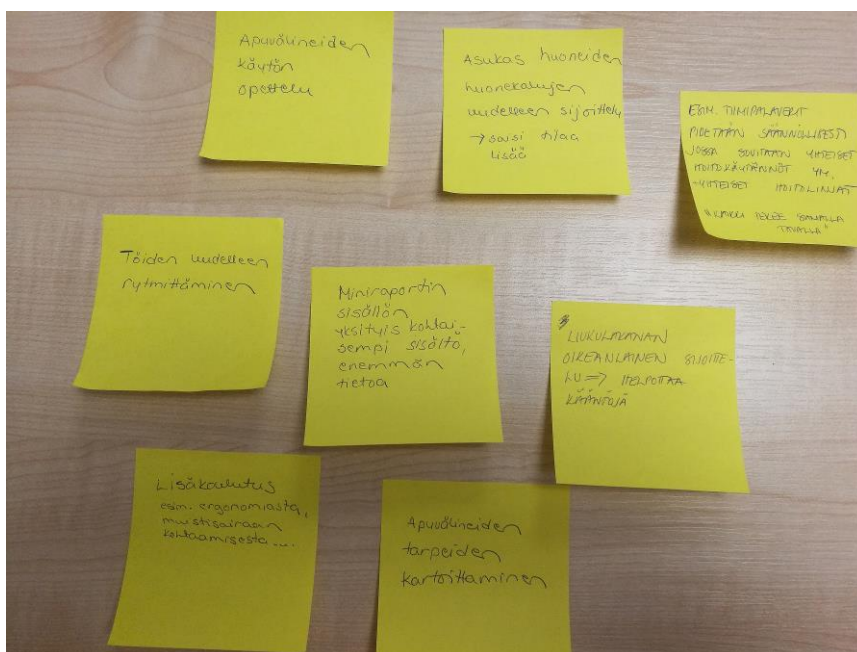 Apuvälineiden
käytön
opettelu
Asukas huoneiden
huonekalujen
uudelleen sijoittelu
→ saisi tilaa
lisää
ESIM. TIIMIPALAVERIT
PIDETÄÄN SÄÄNNÖLLISESTI
JOSSA SOVITAAN YHTEISET
HOITOKÄYTÄNNÖT YM,
YHTEISET HOITOLINJAT
"KAIKKI TEKEE SAMALLA
TAVALLA"
Töiden uudelleen
rytmittäminen
Miniraportin
sisällön
yksityis kohtai-
sempi sisältö,
enemmän
tietoa
LIUKULAKANAN
OIKEANLAINEN SIJOITTE-
LU => HELPOTTAA
KÄÄNTÖJÄ
Lisäkoulutus
esim. ergonomiasta,
muistisairaan
kohtaamisesta ....
Apuvälineiden
tarpeiden
kartoittaminen